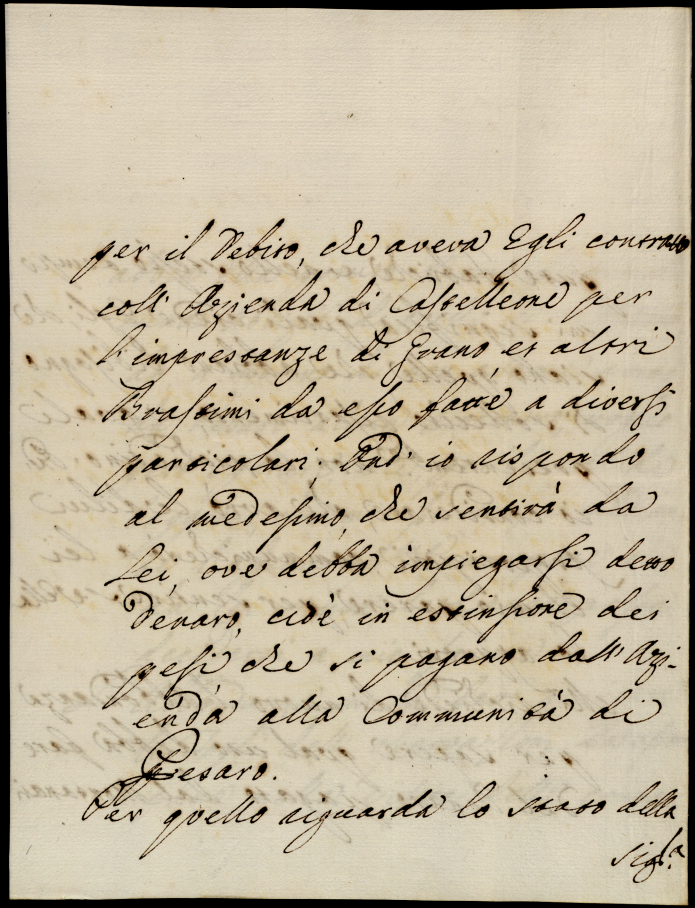 per il Debito, che aveva Egli contratto
coll' Azienda di Castelleone per
l'imprestanze di Grano et altri
Brastimi da esso fatte a diversi
particolari. Ond' io rispondo
al medesimo, che sentirà da
Lei, ove debba impiegarsi detto
Denaro, cioè in estinsione dei
pesi che si pagano dall' Azi-
enda alla Communità di
Pesaro.
Per quello riguarda lo stato della
Sig.ra